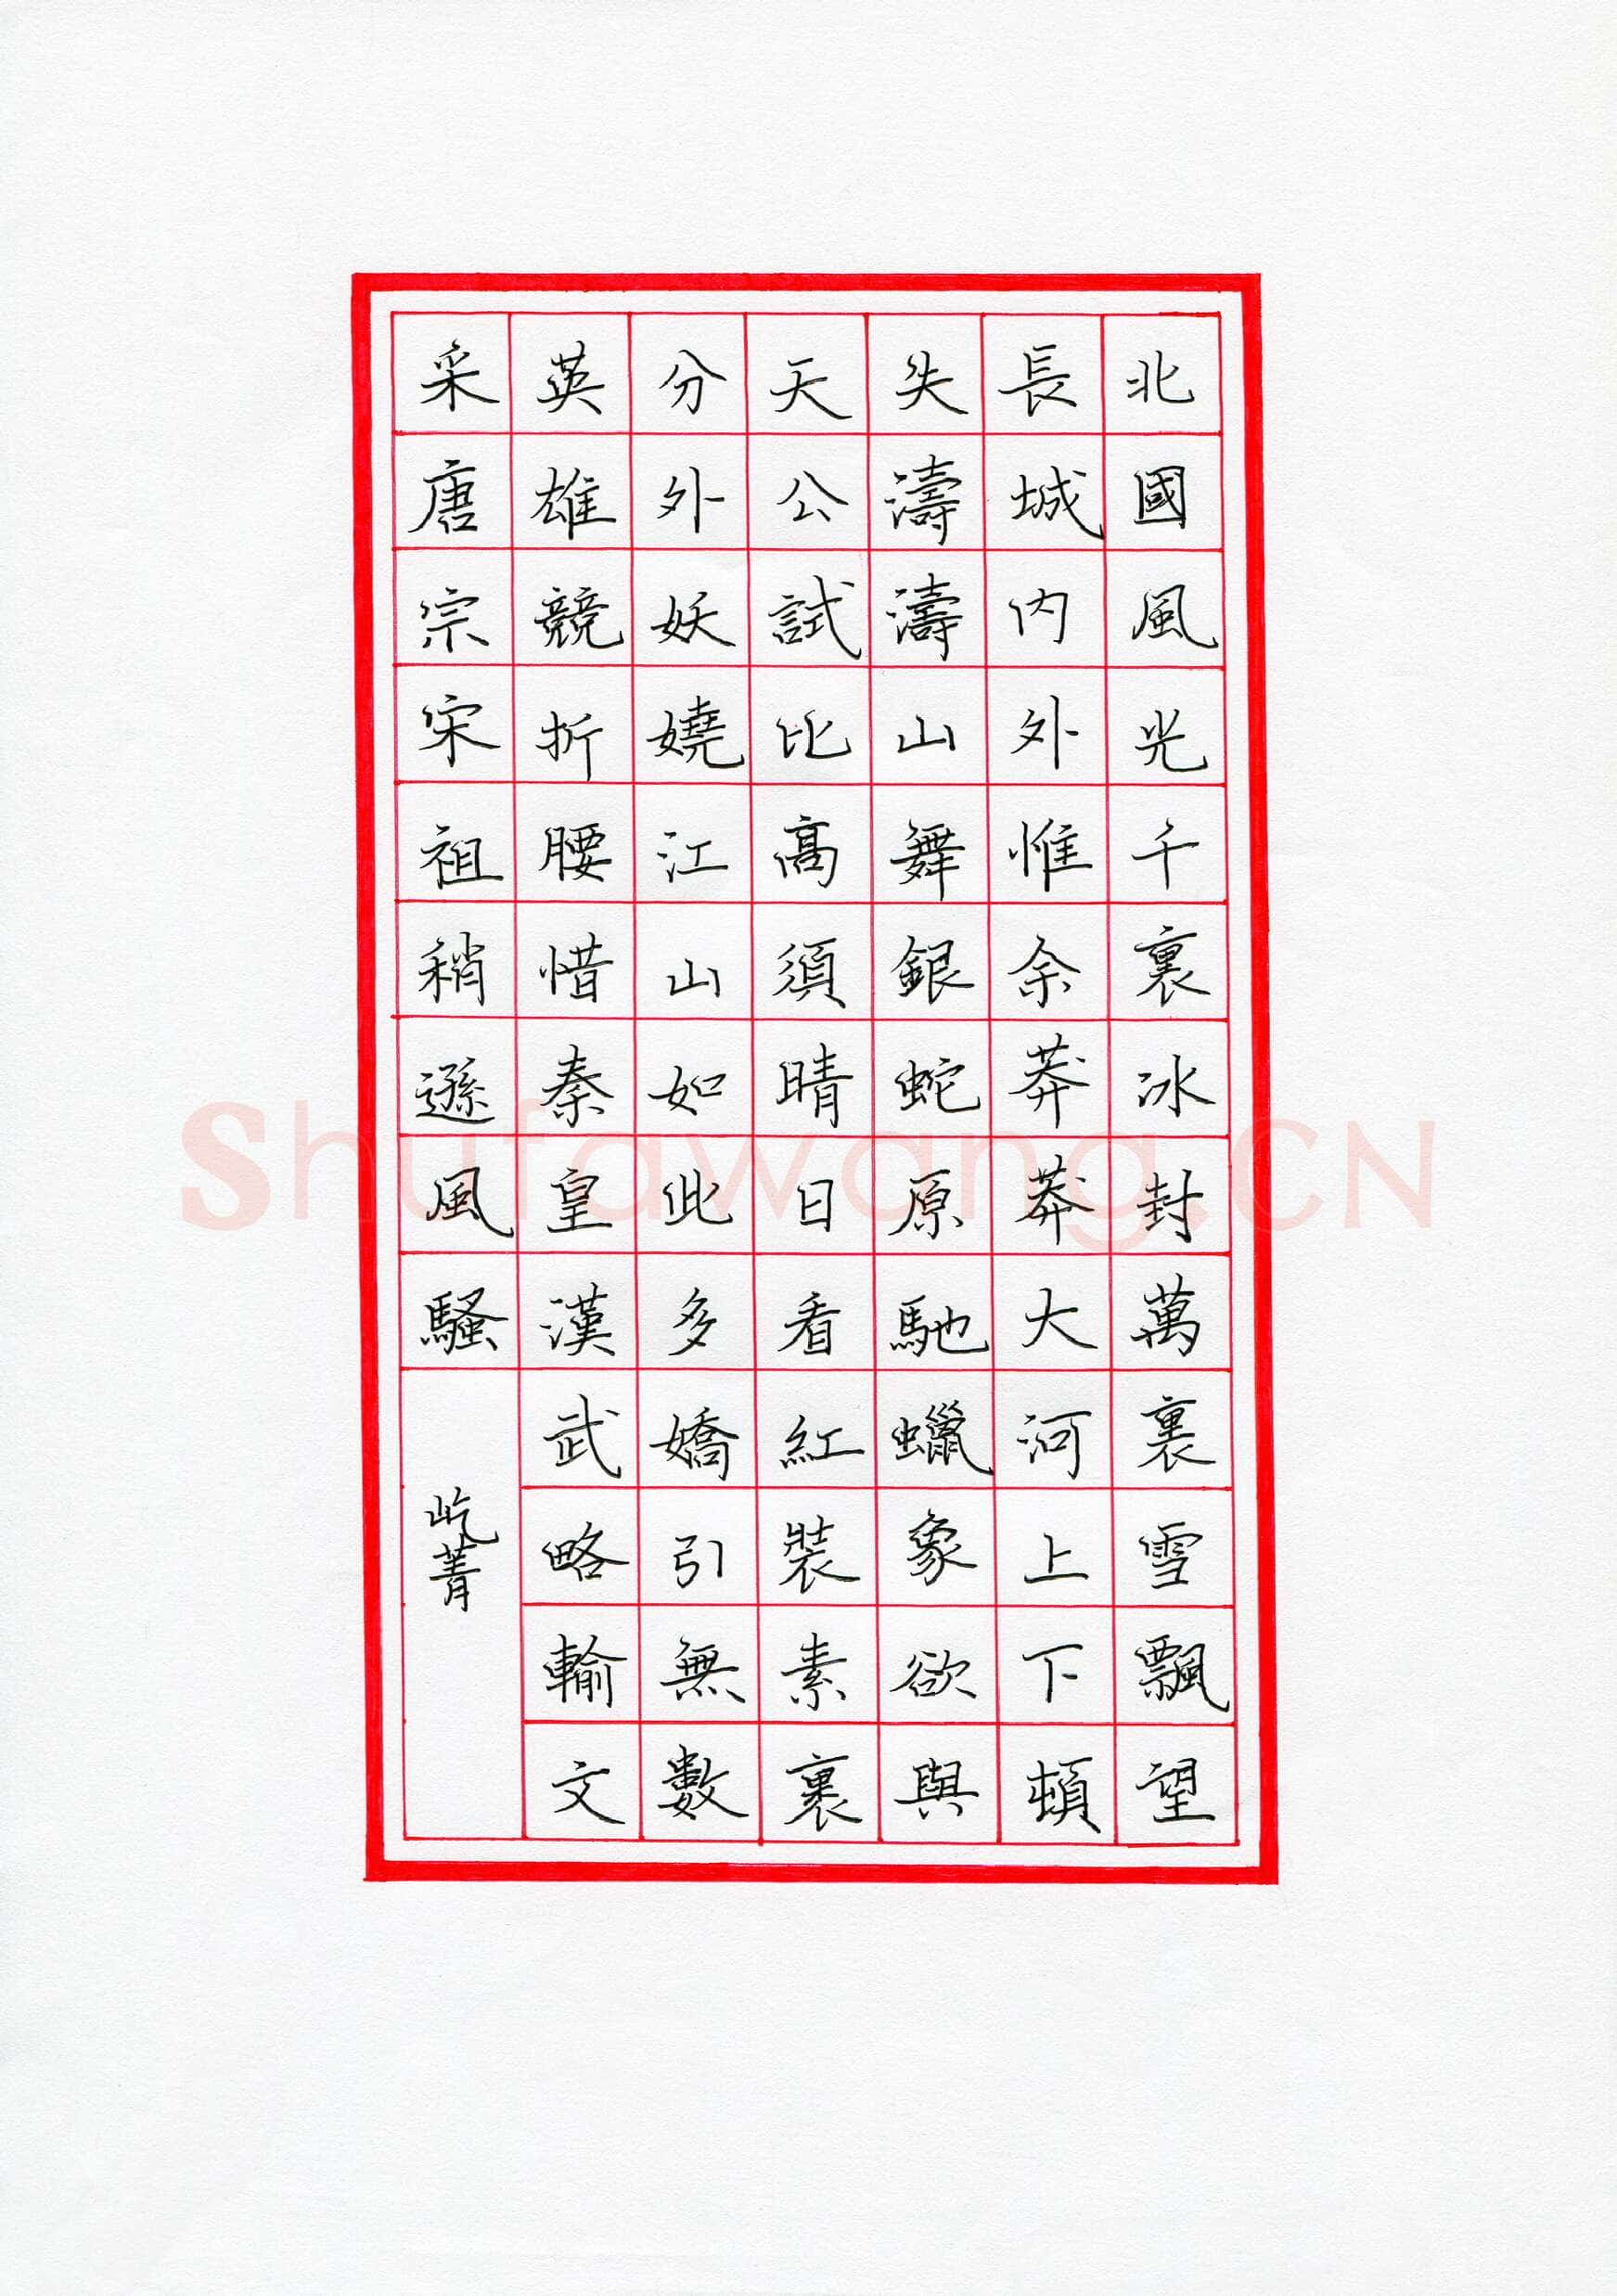 北國風光千裏冰封萬裏雪飄望
長城内外惟余莽莽大河上下頓
失濤濤山舞銀蛇原馳蠟象欲與
天公試比高須晴日看紅裝素裹
分外妖嬈江山如此多嬌引無數
英雄競折腰惜秦皇漢武略輸文
采唐宗宋祖稍遜風騷
屹菁
Shufawang.CN